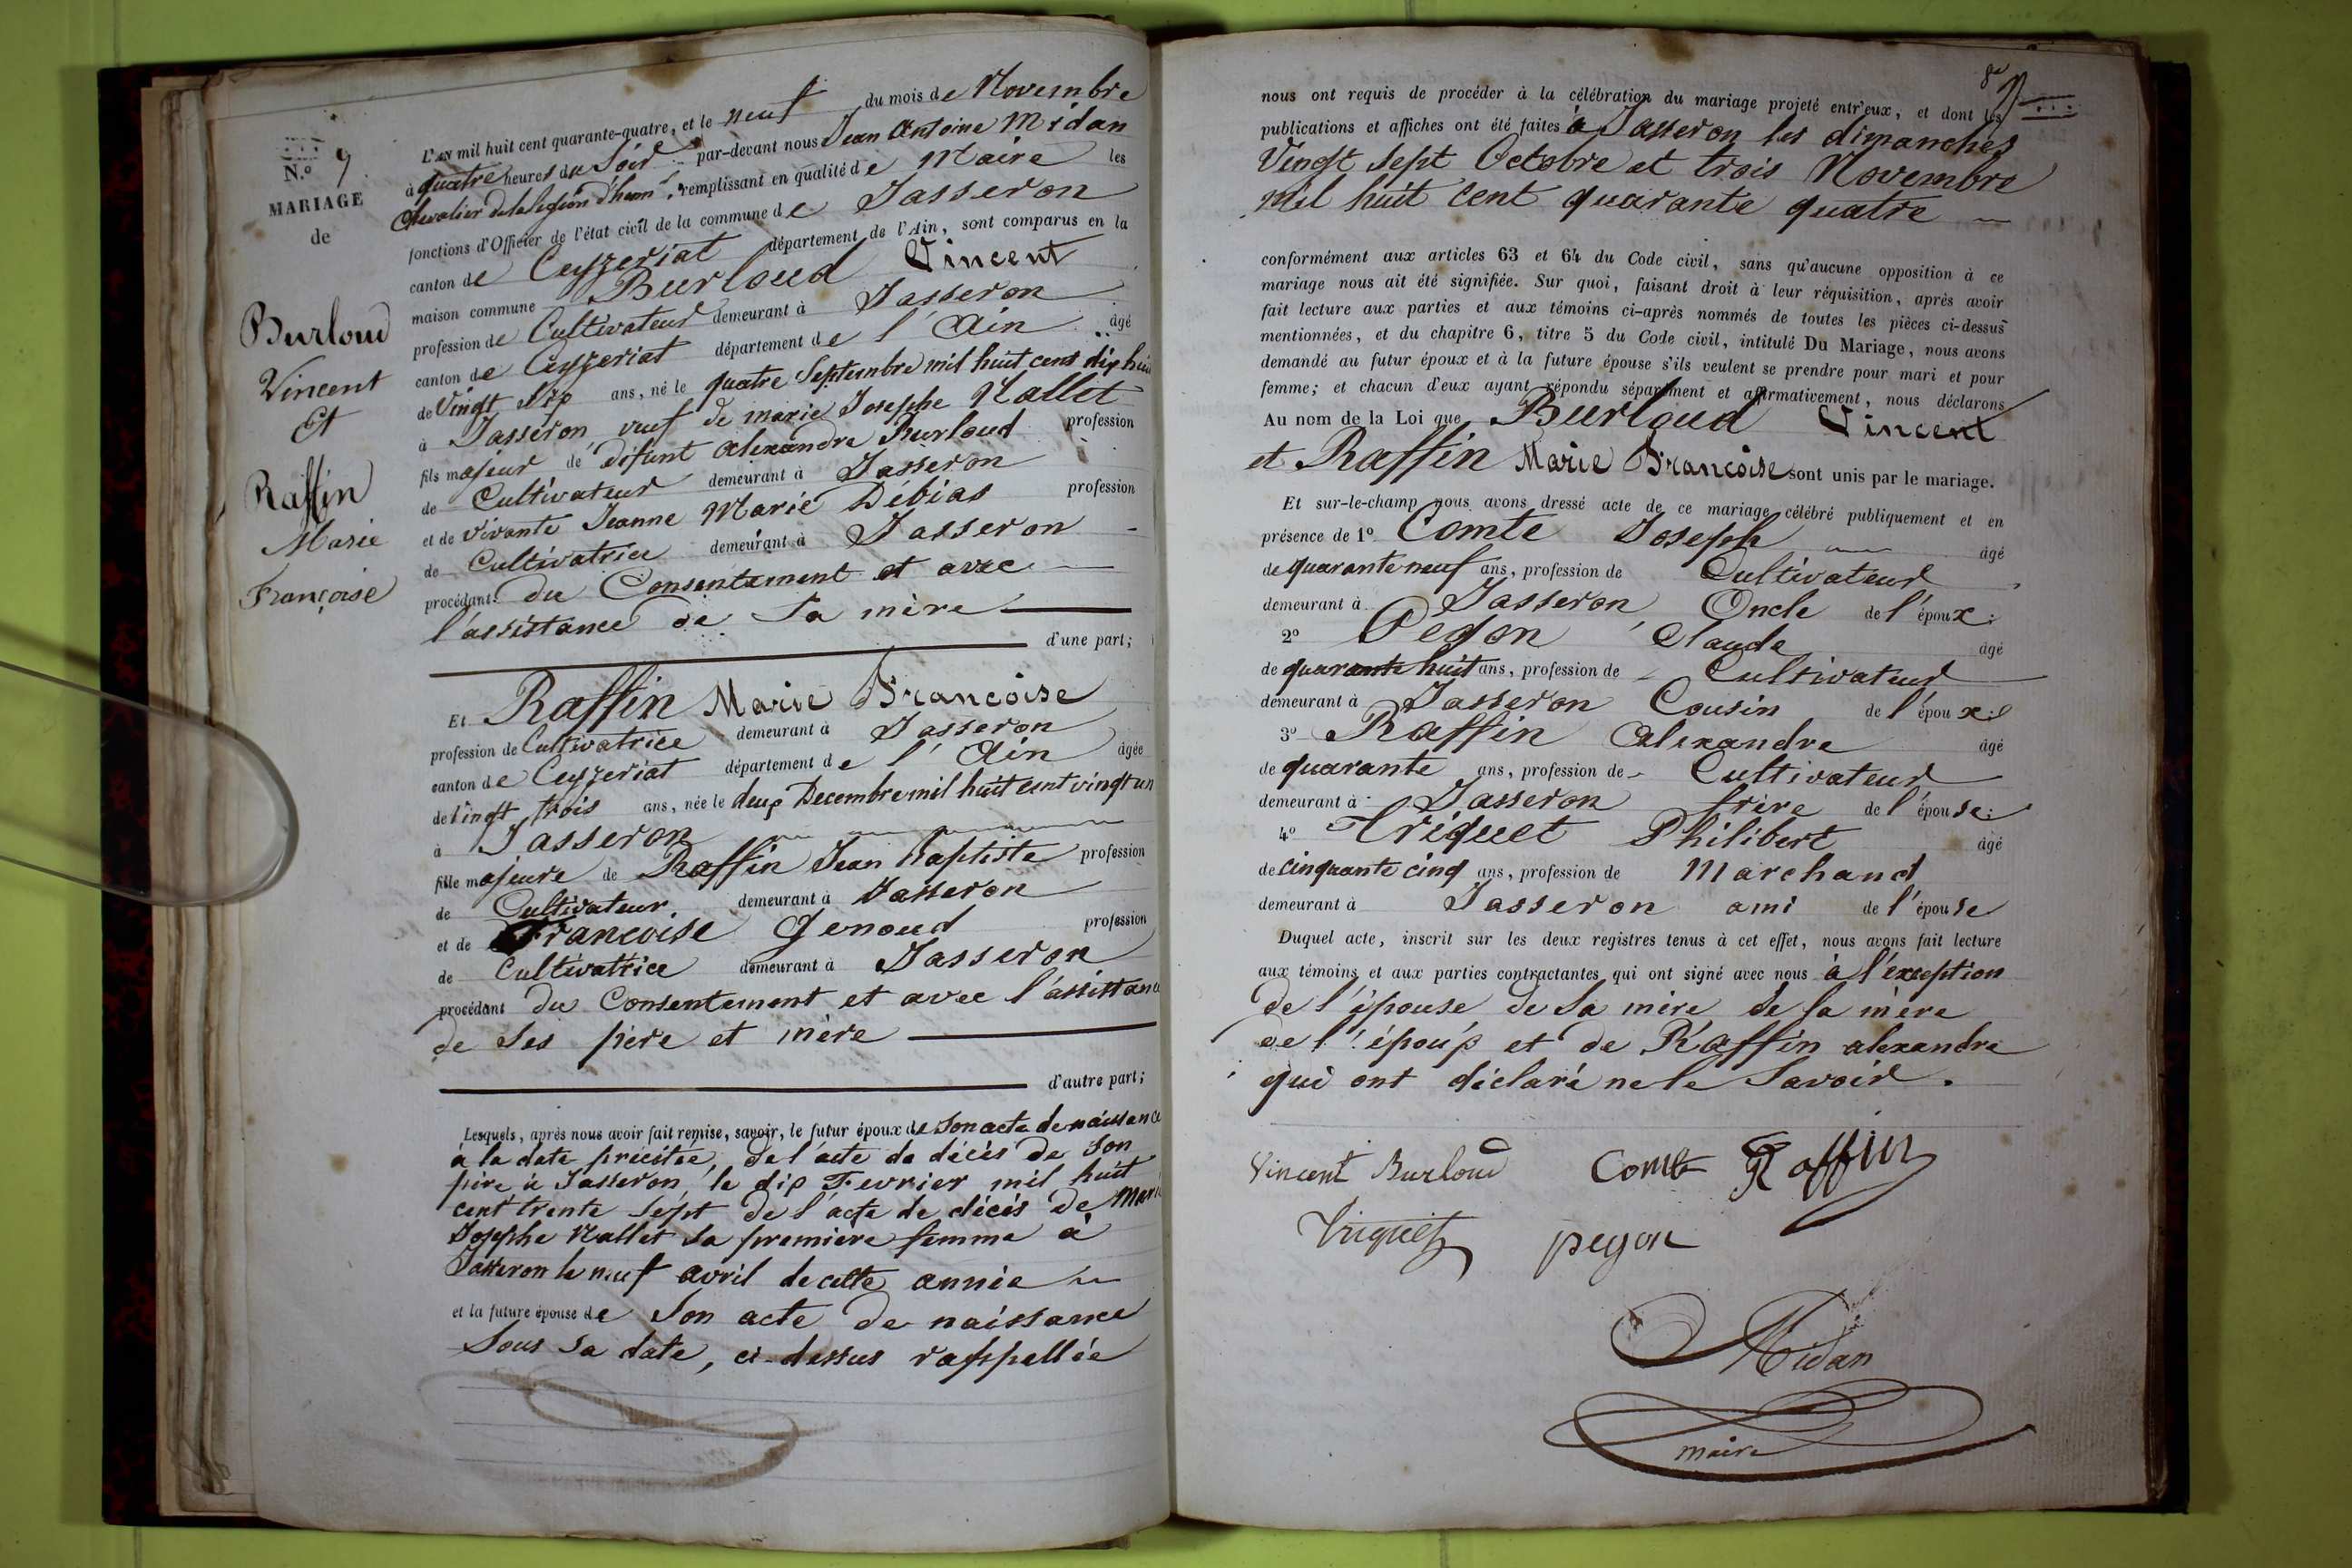 N.º 9
MARIAGE
de
Burloud
Vincent
Et
Raffin
Marie
Françoise
L'AN mil huit cent quarante-quatre, et le neuf du mois de Novembre
à quatre heures du Soir par-devant nous Jean Antoine Midan
Chevalier de la légion d'honr. remplissant en qualité de Maire les
fonctions d'Officier de l'état civil de la commune de Jasseron
canton de Ceyzeriat département de l'Ain, sont comparus en la
maison commune Burloud Vincent
profession de Cultivateur demeurant à Jasseron
canton de Ceyzeriat département de l'Ain âgé
de Vingt Six ans, né le quatre Septembre mil huit cent dix huit
à Jasseron veuf de marie Josephe Nallet
fils majeur de défunt alexandre Burloud profession
de Cultivateur demeurant à Jasseron
et de vivante Jeanne Marie Débias profession
de Cultivatrice demeurant à Jasseron
procédant du Consentement et avec
l'assistance de Sa mère
d'une part;
Et Raffin Marie Francoise
profession de Cultivatrice demeurant à Jasseron
canton de Ceyzeriat département de l'Ain âgée
de Vingt trois ans, née le deux Decembre mil huit cent vingt un
à Jasseron
fille majeure de Raffin Jean Baptiste profession
de Cultivateur demeurant à Jasseron
et de Francoise Genoud profession
de Cultivatrice demeurant à Jasseron
procédant du Consentement et avec l'assistance
de Ses père et mère
d'autre part;
Lesquels, après nous avoir fait remise, savoir, le futur époux de Son acte de naissance
à la date précitée, de l'acte de décès de Son
père à Jasseron le dix Fevrier mil huit
cent trente Sept de l'acte de décès de Marie
Josephe Nallet Sa premiere femme à
Jasseron le neuf avril de cette année
et la future épouse de Son acte de naissance
Sous Sa date, ci-dessus rappellée
nous ont requis de procéder à la célébration du mariage projeté entr'eux, et dont les
publications et affiches ont été faites à Jasseron les dimanches
Vingt Sept Octobre et trois Novembre
mil huit cent quarante quatre
conformément aux articles 63 et 64 du Code civil, sans qu'aucune opposition à ce
mariage nous ait été signifiée. Sur quoi, faisant droit à leur réquisition, après avoir
fait lecture aux parties et aux témoins ci-après nommés de toutes les pièces ci-dessus
mentionnées, et du chapitre 6, titre 5 du Code civil, intitulé Du Mariage, nous avons
demandé au futur époux et à la future épouse s'ils veulent se prendre pour mari et pour
femme; et chacun d'eux ayant répondu séparément et affirmativement, nous déclarons
Au nom de la Loi que Burloud Vincent
et Raffin Marie Francoise sont unis par le mariage.
Et sur-le-champ nous avons dressé acte de ce mariage célébré publiquement et en
présence de 1º Comte Joseph âgé
de quarante neuf ans, profession de Cultivateur
demeurant à Jasseron, Oncle de l'époux;
2º Pegon Claude âgé
de quarante huit ans, profession de Cultivateur
demeurant à Jasseron Cousin de l'époux;
3º Raffin Alexandre âgé
de quarante ans, profession de Cultivateur
demeurant à Jasseron frère de l'épouse;
4º Triquet Philibert âgé
de cinquante cinq ans, profession de Marchand
demeurant à Jasseron ami de l'épouse
Duquel acte, inscrit sur les deux registres tenus à cet effet, nous avons fait lecture
aux témoins et aux parties contractantes qui ont signé avec nous à l'exception
de l'épouse de Sa mère de Sa mère
de l'époux et de Raffin alexandre
qui ont déclaré ne le Savoir.
Vincent Burloud Comte Raffin
Triquet pegon
Midan
maire